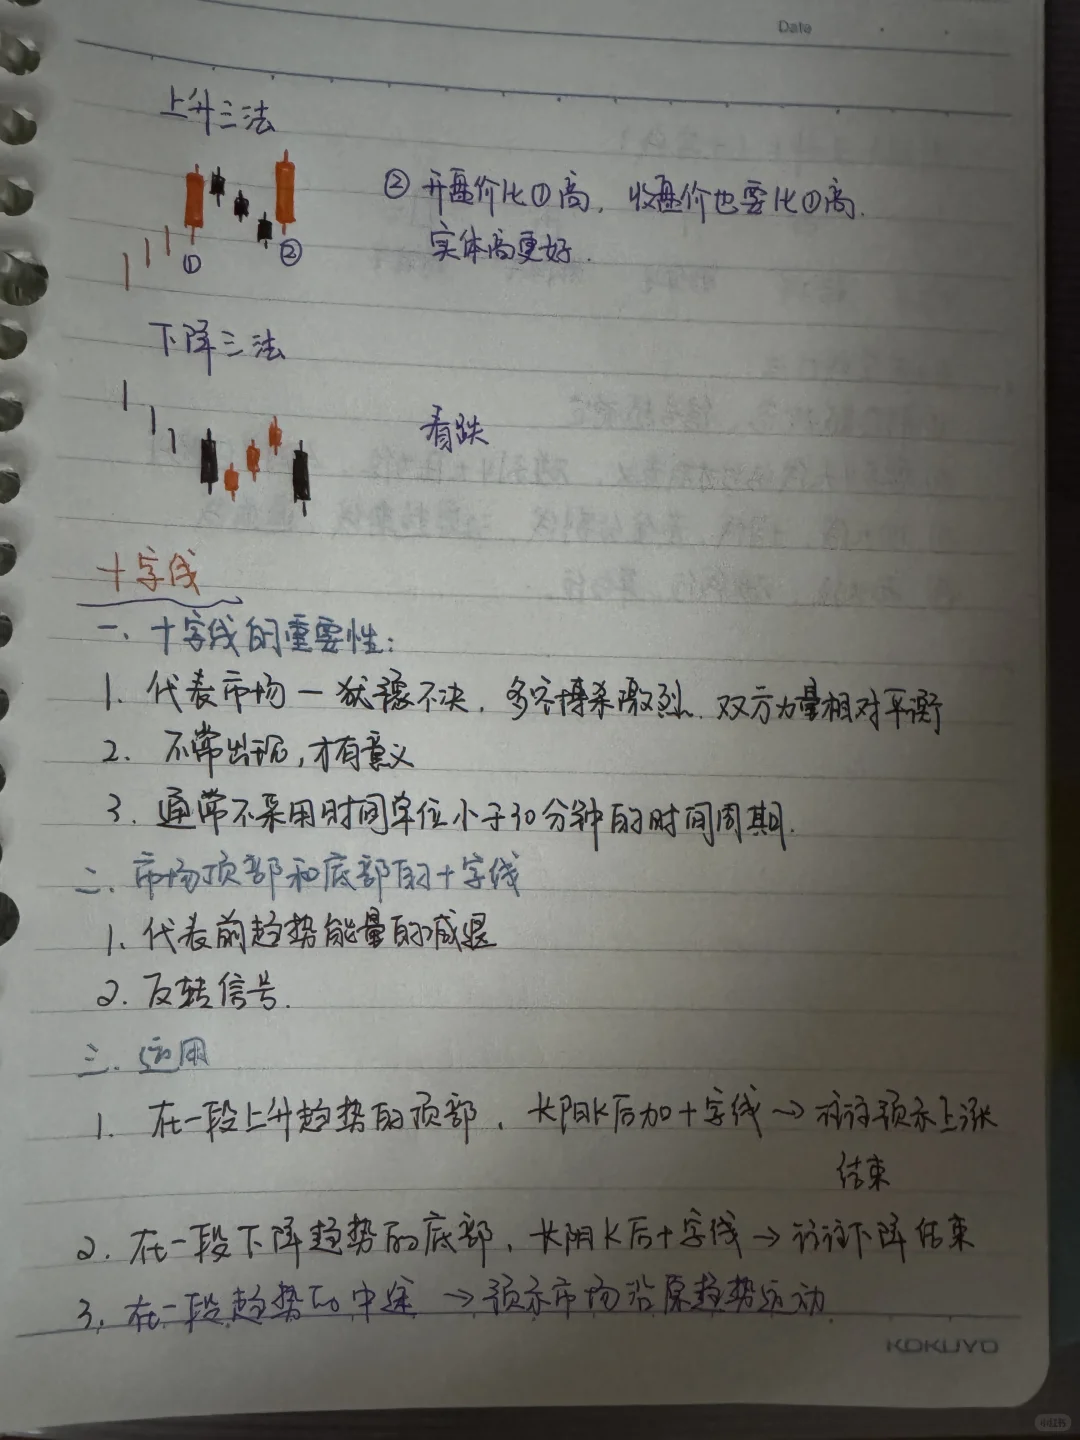 Date
上升三法
① ②
② 开盘价比①高，收盘价也要比①高.
实体高更好.
下降三法
看跌
十字线
一、十字线的重要性：
1. 代表市场一犹豫不决，多空博杀激烈、双方力量相对平衡
2. 不常出现，才有意义
3. 通常不采用时间单位小于30分钟的时间周期.
二、市场顶部和底部的十字线
1. 代表前趋势能量的减退
2. 反转信号.
三、运用
1. 在一段上升趋势的顶部，长阳K后加十字线→往往预示上涨
结束
2. 在一段下降趋势的底部，长阴K后十字线→往往下降结束
3. 在一段趋势的中途→预示市场沿原趋势运动
KOKUYO
小红书